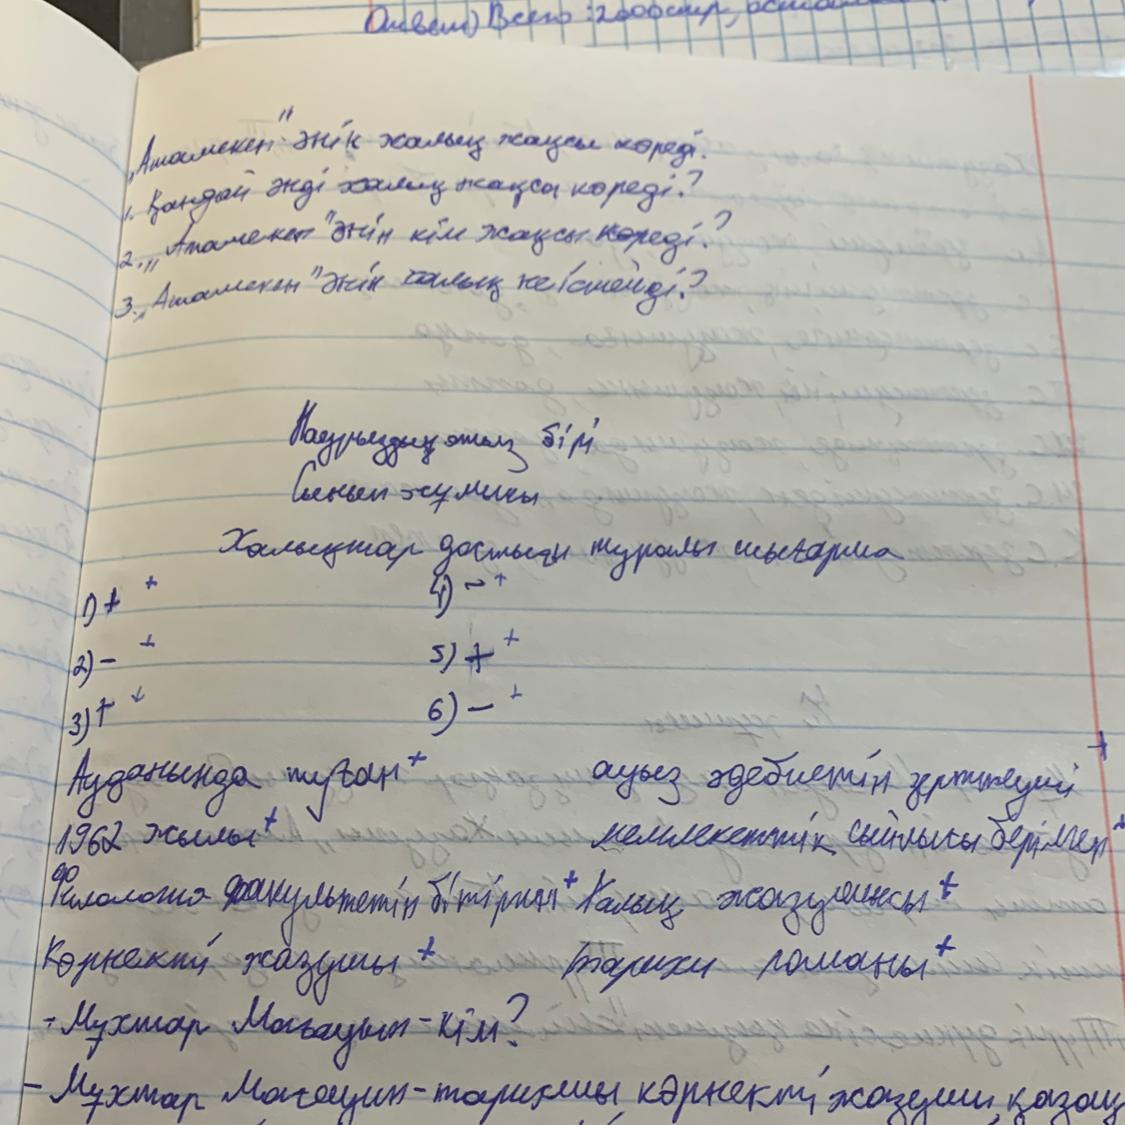 Ответ) Всего :2000стр,
„Атамекен" әнін халық жақсы көреді.
1. Қандай әнді халық жақсы көреді?
2. „Атамекен" әнін кім жақсы көреді?
3. „Атамекен" әнін халық не істейді?
Наурыздың отыз бірі
Сынып жұмысы
Халықтар достығы туралы шығарма
1) + + 4) - +
2) - + 5) + +
3) + + 6) - +
Ауданында туған + ауыз әдебиетін зерттеуші +
1962 жылы + мемлекеттік сыйлығы берілген +
Филология факультетін бітірген + Халық жазушысы +
Көрнекті жазушы + тарихи романы +
- Мұхтар Мағауин - кім?
- Мұхтар Мағауин - тарихшы көрнекті жазушы, қазақ